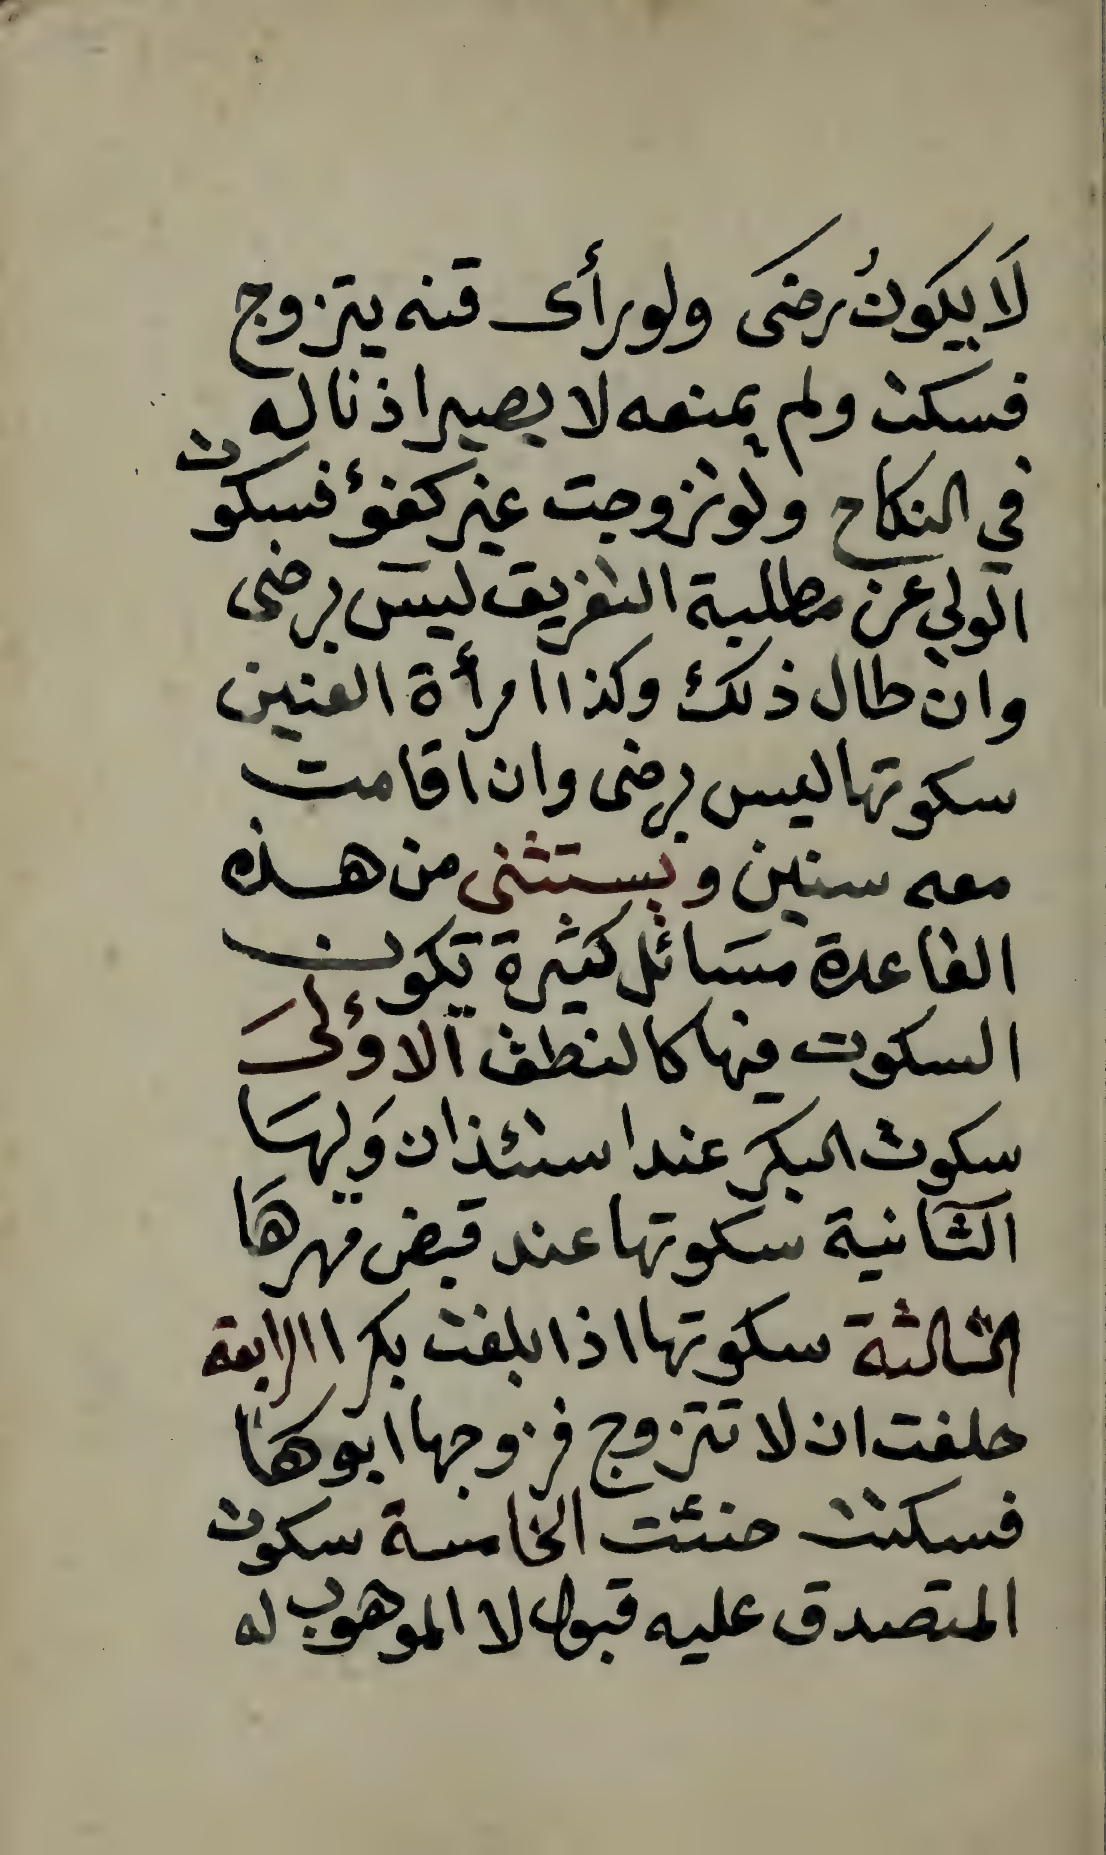 لَا يكونُ رضَى ولو رأى قنه يتزوج
فسكت ولم يمنعه لا يصير اذنا له
في النكاح ولو تزوجت غير كفؤ فسكوت
الولي عن مطلبة التفريق ليس برضى
وان طال ذلك وكذا امرأة العنين
سكوتها ليس برضى وان اقامت
معه سنين ويستثنى من هذه
القاعدة مسَائل كثيرة تكون
السكوت فيها كالنطق الاؤلىَ
سكوت البكر عند استئذان وَليهَا
الثانية سكوتها عند قبض مهرهَا
الثالثة سكوتها اذا بلغت بكرا الرابعة
حلفت ان لا تتزوج فزوجها ابوها
فسكتت حنئت الخامسة سكوت
المتصدق عليه قبول لا الموهوب له